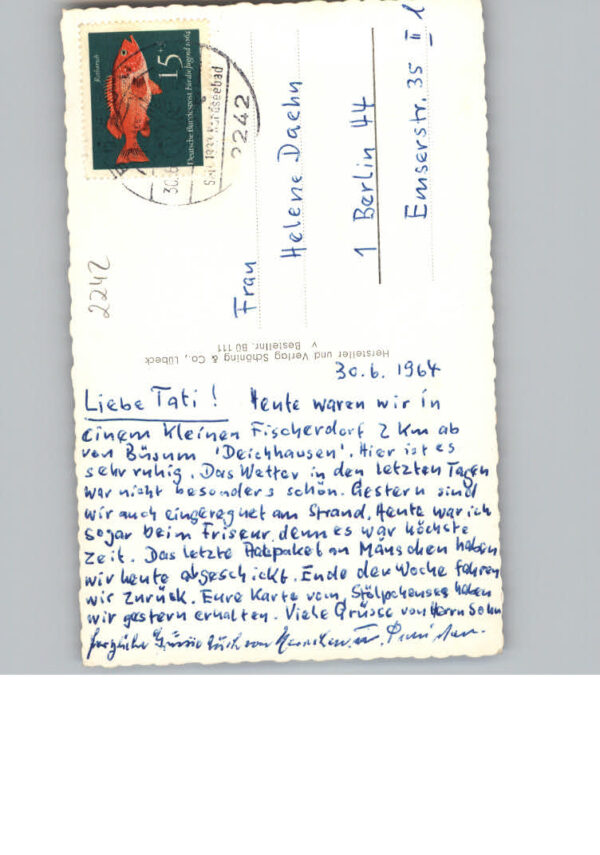 Rotbarsch
15
Deutsche Bundespost Für die Jugend 1964
30.6
2242
2242
Frau
Helene Daehn
1 Berlin 44
Emserstr. 35 II l
Hersteller und Verlag Schöning & Co., Lübeck
v Bestellnr. Bü 111
30.6. 1964
Liebe Tati! Heute waren wir in
einem kleinen Fischerdorf 2 km ab
von Büsum 'Deichhausen'. Hier ist es
sehr ruhig. Das Wetter in den letzten Tagen
war nicht besonders schön. Gestern sind
wir auch eingeregnet am Strand. Heute war ich
sogar beim Friseur, denn es war höchste
Zeit. Das letzte an Mänschen haben
wir heute abgeschickt. Ende der Woche fahren
wir zurück. Eure Karte vom haben
wir gestern erhalten. Viele Grüsse von Herrn Sohn
Grüsse Euch von